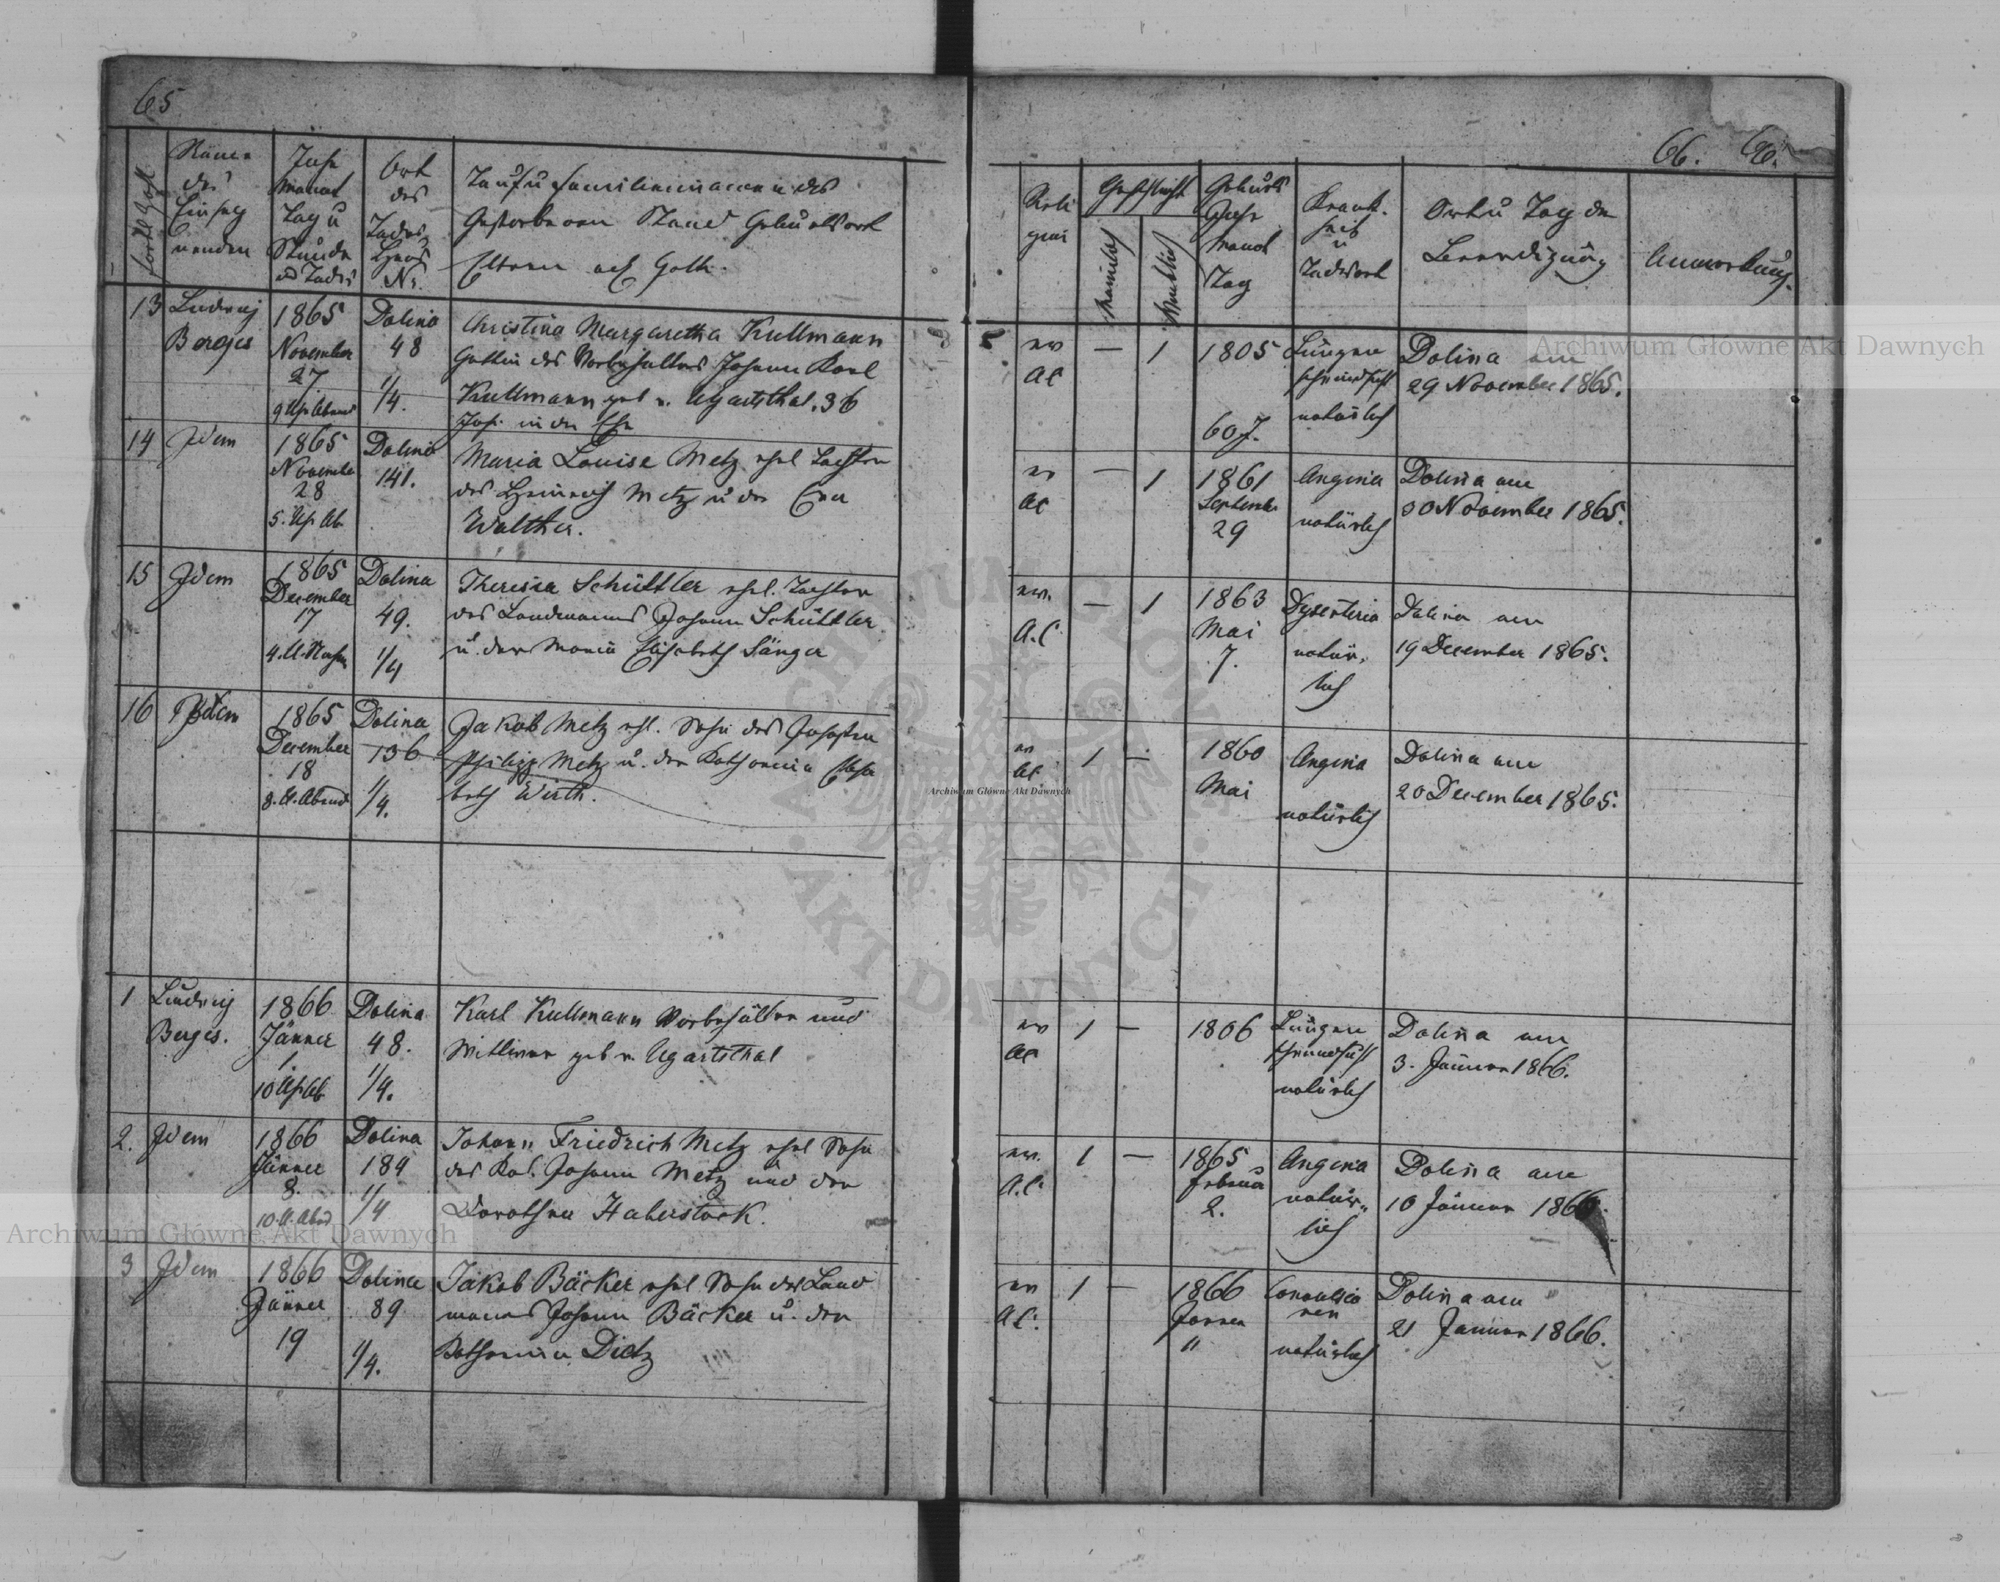 65
Namen
des
Einseg
nenden
Jahr
Monat
Tag u
Stunde
des Todes
Ort
des
Todes
Haus
Nr.
Tauf u Familiennamen des
Gestorbenen Stand Geburtsort
Eltern
13
Ludwig
Berges
1865
November
27
9 Uhr Abend
Dolina
48
1/4.
Christina Margaretha Kullmann
Gattin des Vorbehalters Johann Karl
Kullmann geb v. Ugartsthal. 36
Jah. in der Ehe
14
Idem
1865
November
28
5. Uhr Ab
Dolina
141.
Maria Louise Metz ehel Tochter
des Heinrich Metz u der Eva
Walther.
15
Idem
1865
December
17
4. U. Nachm
Dolina
49.
1/4
Theresia Schüttler ehel. Tochter
des Landmanns Johann Schüttler
u. der Maria Elisabeth Sänger
16
Idem
1865
December
18
8. U. Abend
Dolina
136
1/4.
Jakob Metz ehl. Sohn des
Philipp Metz u. der Katharina Elisa
beth Wirth.
1
Ludwig
Berges.
1866
Jänner
1.
10 Uhr Ab
Dolina
48.
1/4.
Karl Kullmann Vorbehalter und
Wittwer geb v. Ugartsthal
2.
Idem
1866
Jänner
8.
10. U. Abd
Dolina
184
1/4
Johann Friedrich Metz ehel Sohn
des Kol. Johann Metz und der
Dorothea Haberstock.
3
Idem
1866
Jänner
19
Dolina
89
1/4.
Jakob Bäcker ehel Sohn des Land
manns Johann Bäcker u. der
Katharina Dietz
66. 66.
Reli
gion
Geschlecht
männlich
weiblich
Geburts
Jahr
Monat
Tag
Krank-
heit
u
Todesart
Ort u Tag der
Beerdigung
Anmerkung.
ev
AC
—
1
1805
60 J.
Lungen
schwindsucht
natürlich
Dolina am
29 November 1865.
ev
AC
—
1
1861
September
29
Angina
natürlich
Dolina am
30 November 1865.
ev.
A.C
—
1
1863
Mai
7.
Dysenteria
natür-
lich
Dolina am
19 December 1865.
ev
AC
1
—
1860
Mai
Angina
natürlich
Dolina am
20 December 1865.
ev
AC
1
—
1806
Lungen
schwindsucht
natürlich
Dolina am
3. Jänner 1866.
ev.
A.C.
1
—
1865
Februar
2.
Angina
natür-
lich
Dolina am
10 Jänner 1866.
ev
A.C.
1
—
1866
Jänner
"
Convulsio
nen
natürlich
Dolina am
21 Januar 1866.
Archiwum Główne Akt Dawnych
Archiwum Główne Akt Dawnych
Archiwum Główne Akt Dawnych